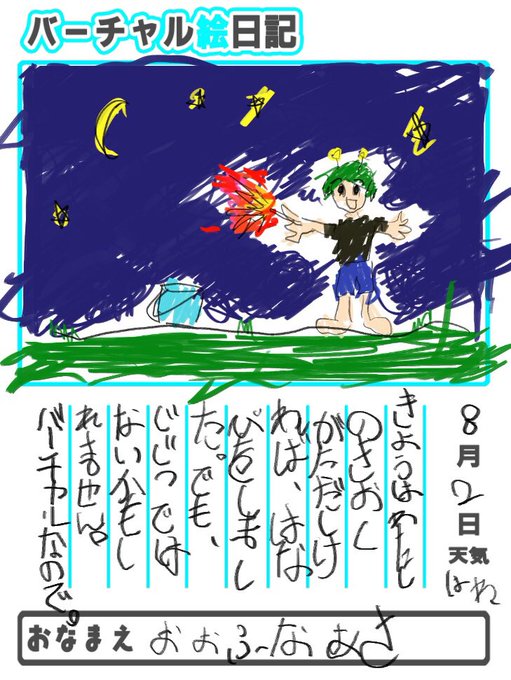 バーチャル絵日記
8月2日
天気 はれ
きょうはわたし
のきおく
がただしけ
れば、はな
びをしまし
た。でも、
じじつでは
ないかもし
れません。
バーチャルなので。
おなまえ